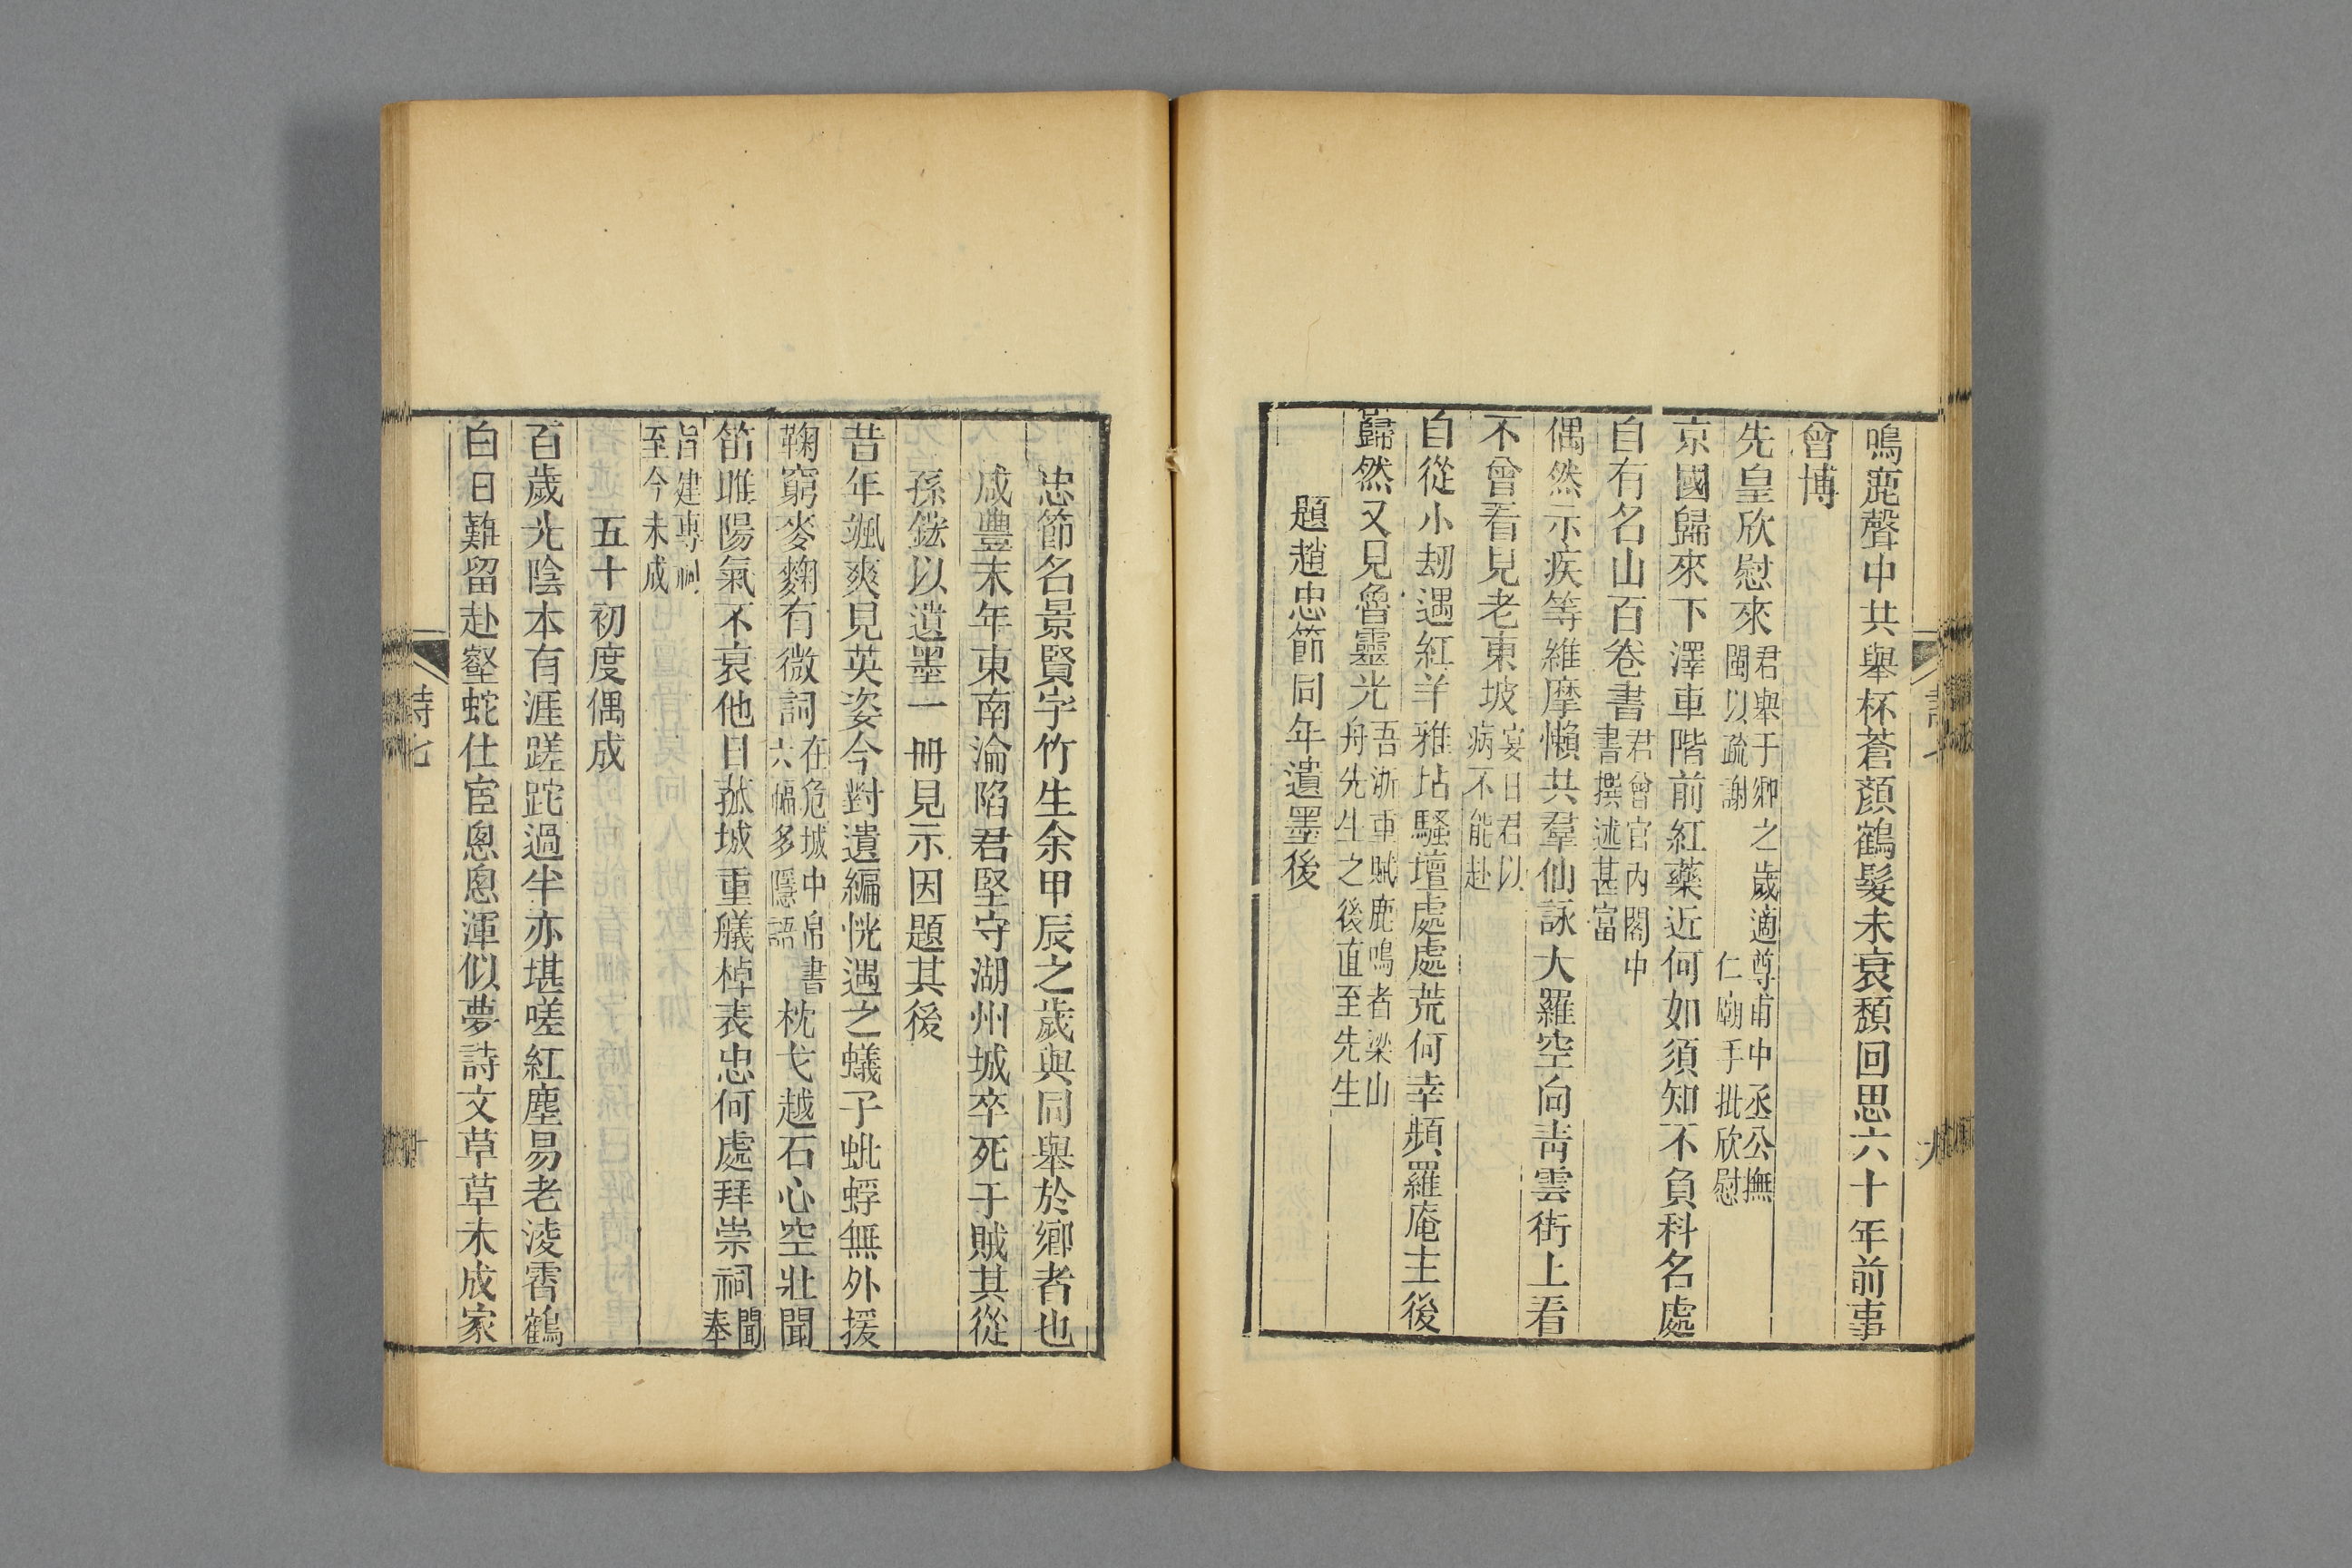 鳴鹿聲中共舉杯蒼顏鶴髮未衰頹回思六十年前事
曾博
先皇欣慰來君舉于鄉之歲適尊甫中丞公撫
閩以疏謝仁廟手批欣慰
京國歸來下澤車階前紅藥近何如須知不負科名處
自有名山百卷書君曾官內閣中
書撰述甚富
偶然示疾等維摩懶共羣仙詠大羅空向青雲街上看
不曾看見老東坡宴日君以
病不能赴
自從小刼遇紅羊雅坫騷壇處處荒何幸頻羅庵主後
巋然又見魯靈光吾浙重賦鹿鳴者梁山
舟先生之後直至先生
題趙忠節同年遺墨後
忠節名景賢字竹生余甲辰之歲與同舉於鄉者也
咸豐末年東南淪陷君堅守湖州城卒死于賊其從
孫鋐以遺墨一冊見示因題其後
昔年颯爽見英姿今對遺編恍遇之蟻子蚍蜉無外援
鞠窮麥麴有微詞在危城中帛書
六幅多隱語枕戈越石心空壯聞
笛睢陽氣不衰他日菰城重艤棹表忠何處拜崇祠聞
奉
旨建專祠
至今未成
五十初度偶成
百歲光陰本有涯蹉跎過半亦堪嗟紅塵易老淩霄鶴
白日難留赴壑蛇仕宦悤悤渾似夢詩文草草未成家
詩七